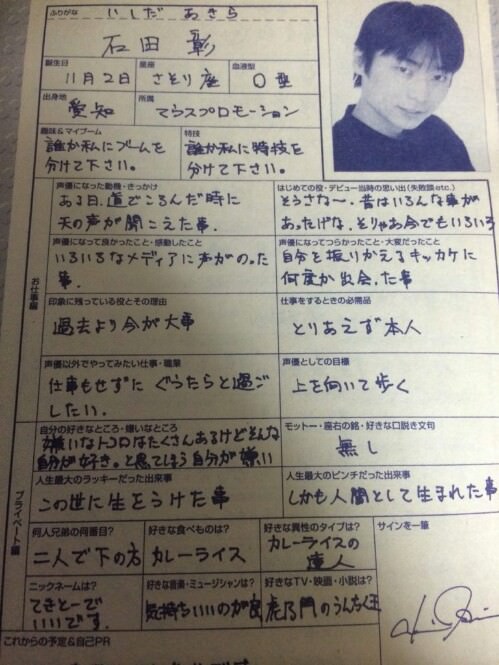 ふりがな いしだ あきら
石田 彰
誕生日 11月2日 星座 さそり座 血液型 O型
出身地 愛知 所属 てらスプロモーション
趣味&マイブーム
誰か私にブームを
分けて下さい。
特技
誰か私に特技を
分けて下さい。
お仕事編
声優になった動機・きっかけ
ある日、道でころんだ時に
天の声が聞こえた事.
はじめての役・デビュー当時の思い出(失敗談etc.)
そうさな〜。昔はいろんな事が
あったげな。そりゃあ今でもいろいろ
声優になって良かったこと・感動したこと
いろいろなメディアに声がのった
事.
声優になってつらかったこと・大変だったこと
自分を振りかえるキッカケに
何度か出会った事
印象に残っている役とその理由
過去より今が大事
仕事をするときの必需品
とりあえず本人
声優以外でやってみたい仕事・職業
仕事もせずに ぐうたらと過ご
したい.
声優としての目標
上を向いて歩く
プライベート編
自分の好きなところ・嫌いなところ
嫌いなトコロはたくさんあるけどそんな
自分が好き。と思てしまう自分が嫌い
モットー・座右の銘・好きな口説き文句
無し
人生最大のラッキーだった出来事
この世に生をうけた事
人生最大のピンチだった出来事
しかも人間として生まれた事
何人兄弟の何番目?
二人で下の方
好きな食べものは?
カレーライス
好きな異性のタイプは?
カレーライスの
達人
サインを一筆
ニックネームは?
てきとーで
いいです.
好きな音楽・ミュージシャンは?
気持ちいいのが良
好きなTV・映画・小説は?
虎の門のうんちく王
これからの予定&自己PR